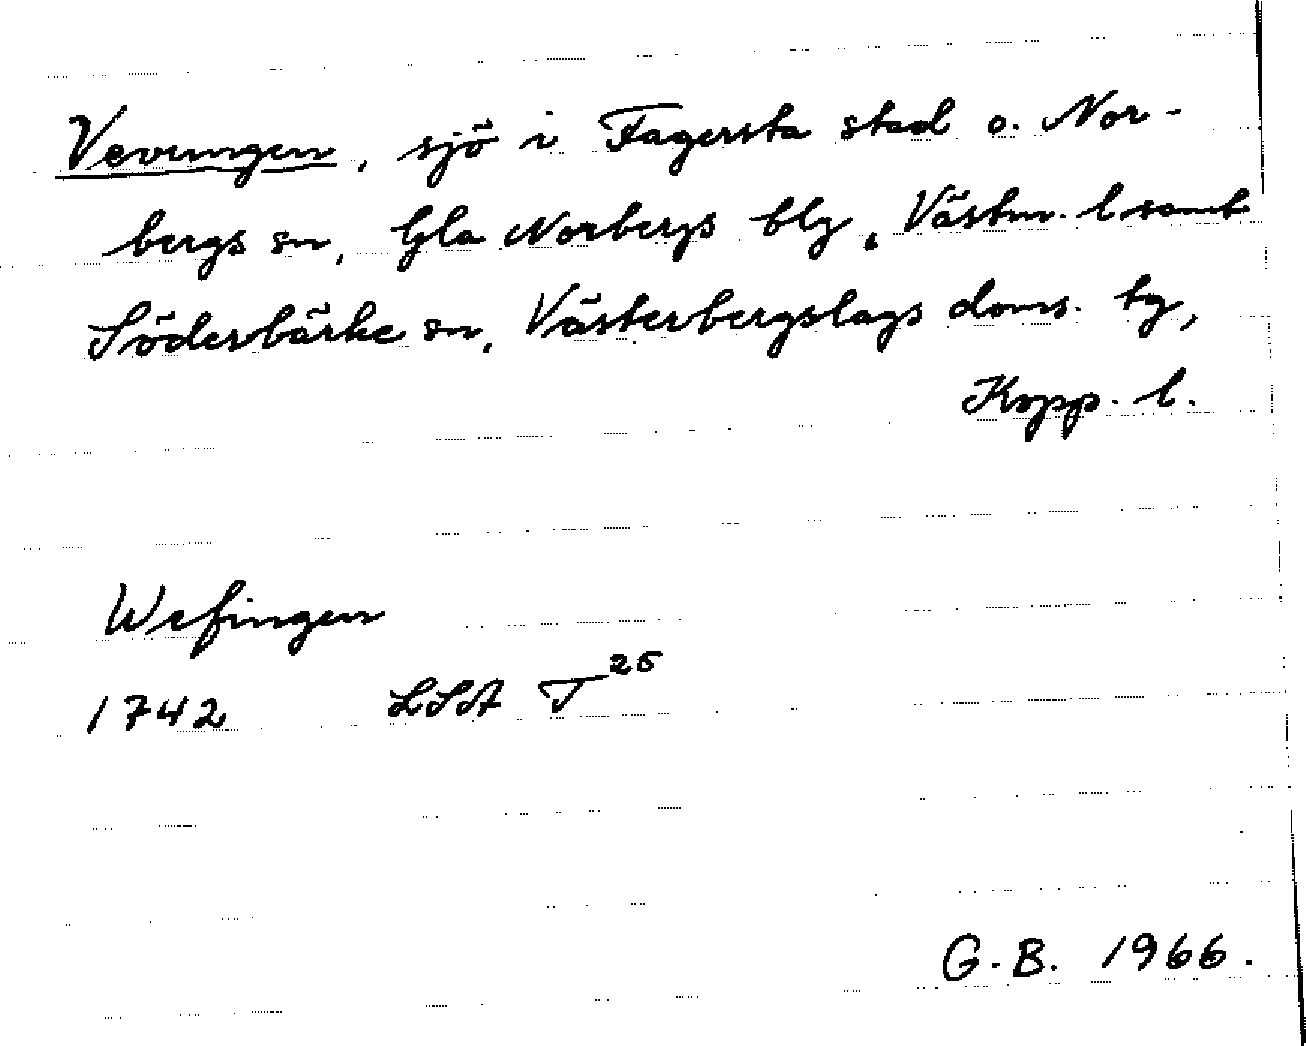 Vevungen, sjö i Fagersta stad o. Nor-
bergs sn, Gla Norbergs blg, Västm. l samt
Söderbärke sn, Västerbergslags doms. tg,
Kopp. l.
Wefingen
1742 LSA T 26
G.B. 1966.